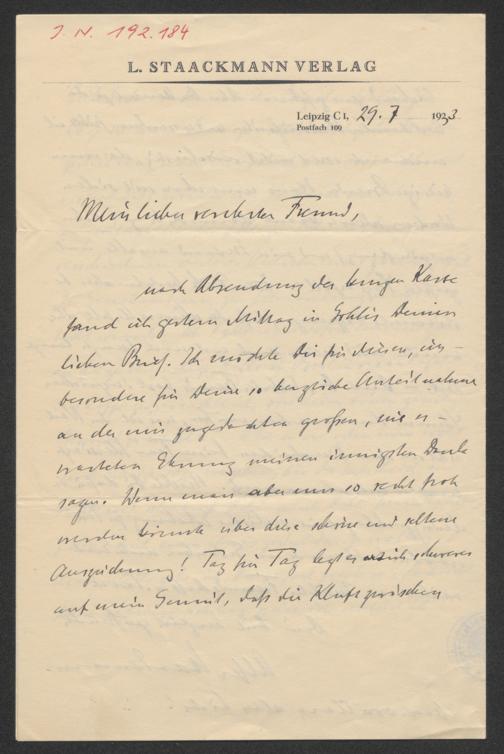 J. N. 192.184
L. STAACKMANN VERLAG
Leipzig C 1, 29. 7 1933
Postfach 109
Mein lieber verehrter Freund,
nach Absendung der langen Karte
fand ich gestern Mittag in Gohlis Deinen
lieben Brief. Ich möchte Dir für diesen, ins-
besondere für Deine so herzliche Anteilnahme
an der mir zugedachten großen, nie er-
warteten Ehrung meinen innigsten Dank
sagen. Wenn man aber nur so recht froh
werden könnte über diese schöne und seltene
Auszeichnung! Tag für Tag legt es sich schwerer
auf mein Gemüt, daß die Kluft zwischen